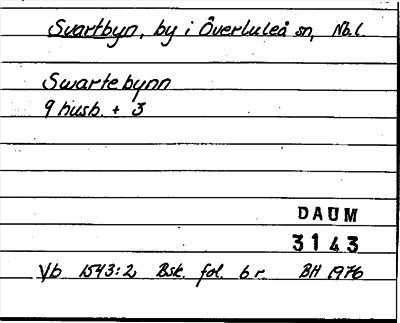 Svartbyn, by i Överluleå sn, Nb.l.
Swartebynn
9 husb. + 3
DAUM
3143
Vb 1543:2, Bsk. fol. 6 r. BH 1976